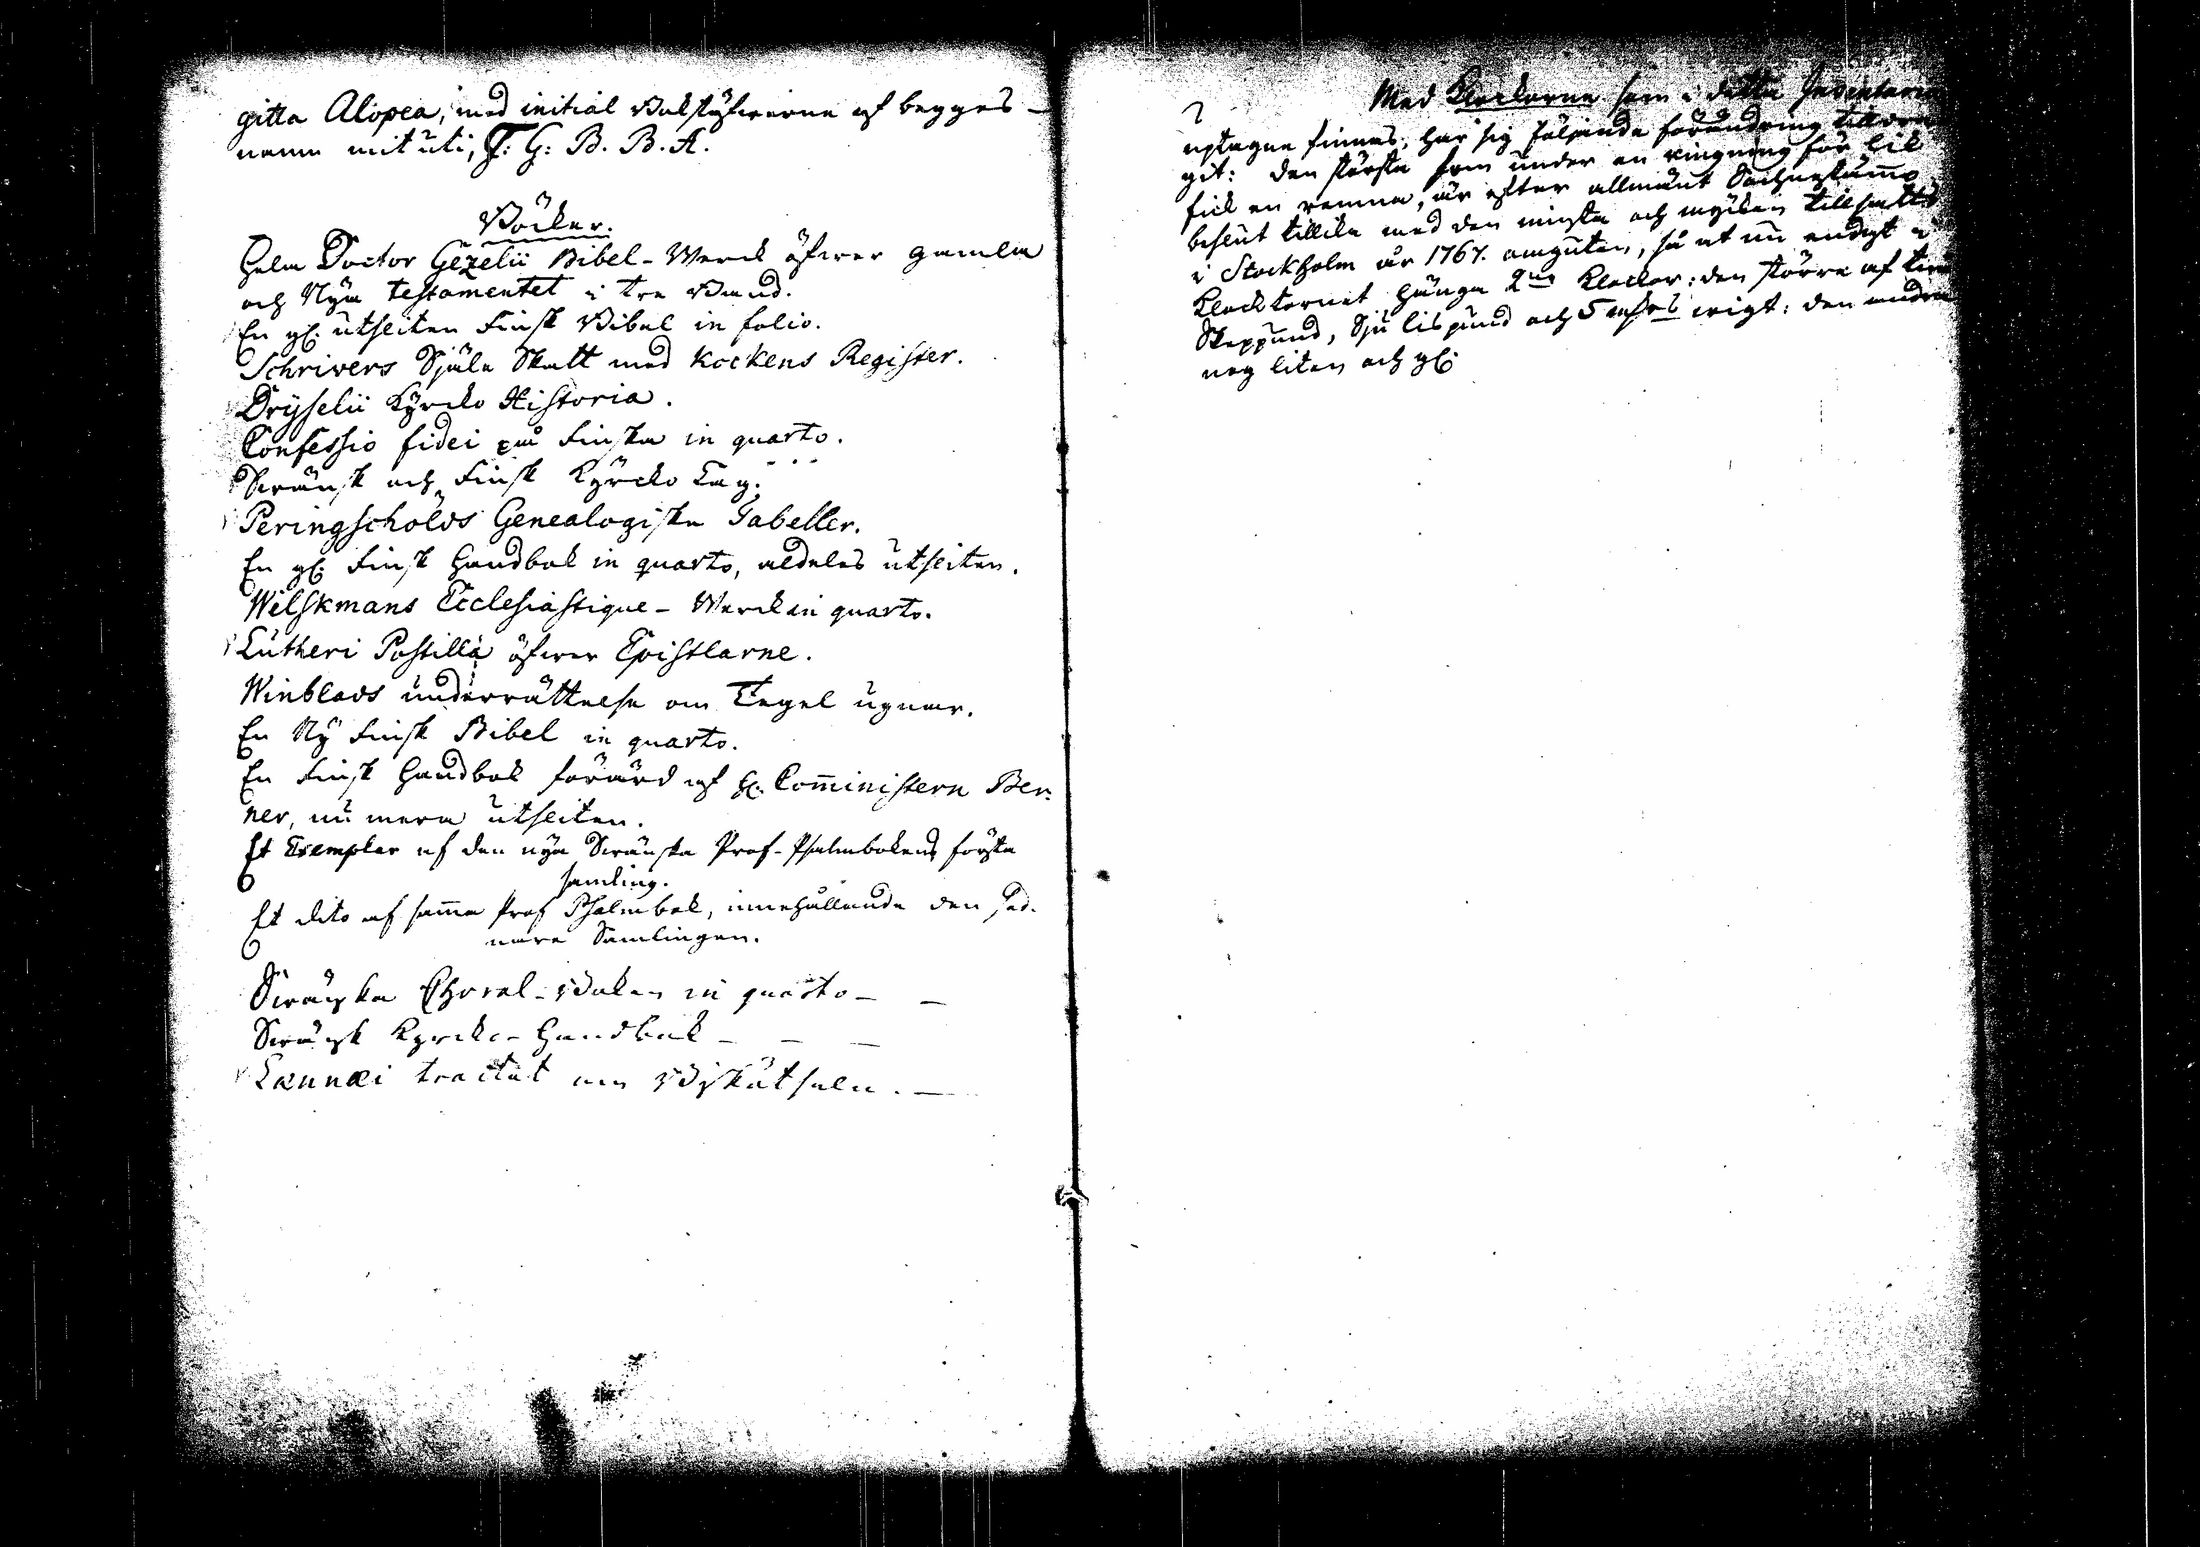 gitta Alopea, med initial Bokstäfwerne af begges
namn mit uti, J: G: B. B. A.
Böcker.
Hela Doctor Gezelii Bibel-Werck öfwer gamla
och Nya testamentet i tre Band.
En gl. utsliten Finsk Bibel in folio.
Schrivers Själa Skatt med Kockens Register.
Dryselii Kyrcko Historia.
Confessio fidei på Finska in quarto.
Swänsk och Finsk Kyrcko Lag.
Peringschölds Genealogiska Tabeller.
En gl. Finsk Handbok in quarto, aldeles utsliten.
Wilskmans Ecclesiastique-Werck in quarto.
Lutheri Postilla öfwer Epistlarne.
Winblads underrättelse om Tegel ugnar.
En Ny Finsk Bibel in quarto.
En Finsk Handbok förärd af H. Comministern Ber-
ner, nu mera utsliten.
Et Exemplar af den nya Swänska Prof-Psalmbokens första
samling.
Et dito af samma Prof Psalmbok, innehållande den sed-
nare Samlingen.
Swänska Choral-Boken in quarto - -
Swänsk Kyrcko-Handbok - - -
Lænnæi tractat om Biskötseln. -
Med Klockorne som i detta Inventarium
uptagne finnas, har sig följande förändring
git: den största som under en ringning för lik
fick en remna, är efter allmänt Sochnestämmo
beslut tillika med den minsta och mycken tillsatts
i Stockholm år 1767. omguten, så at nu endast i
Klocktornet hänga 2ne Klockor: den större af
Skeppund, Sju lispund och 5 wigt: den andra
nog liten och gl.